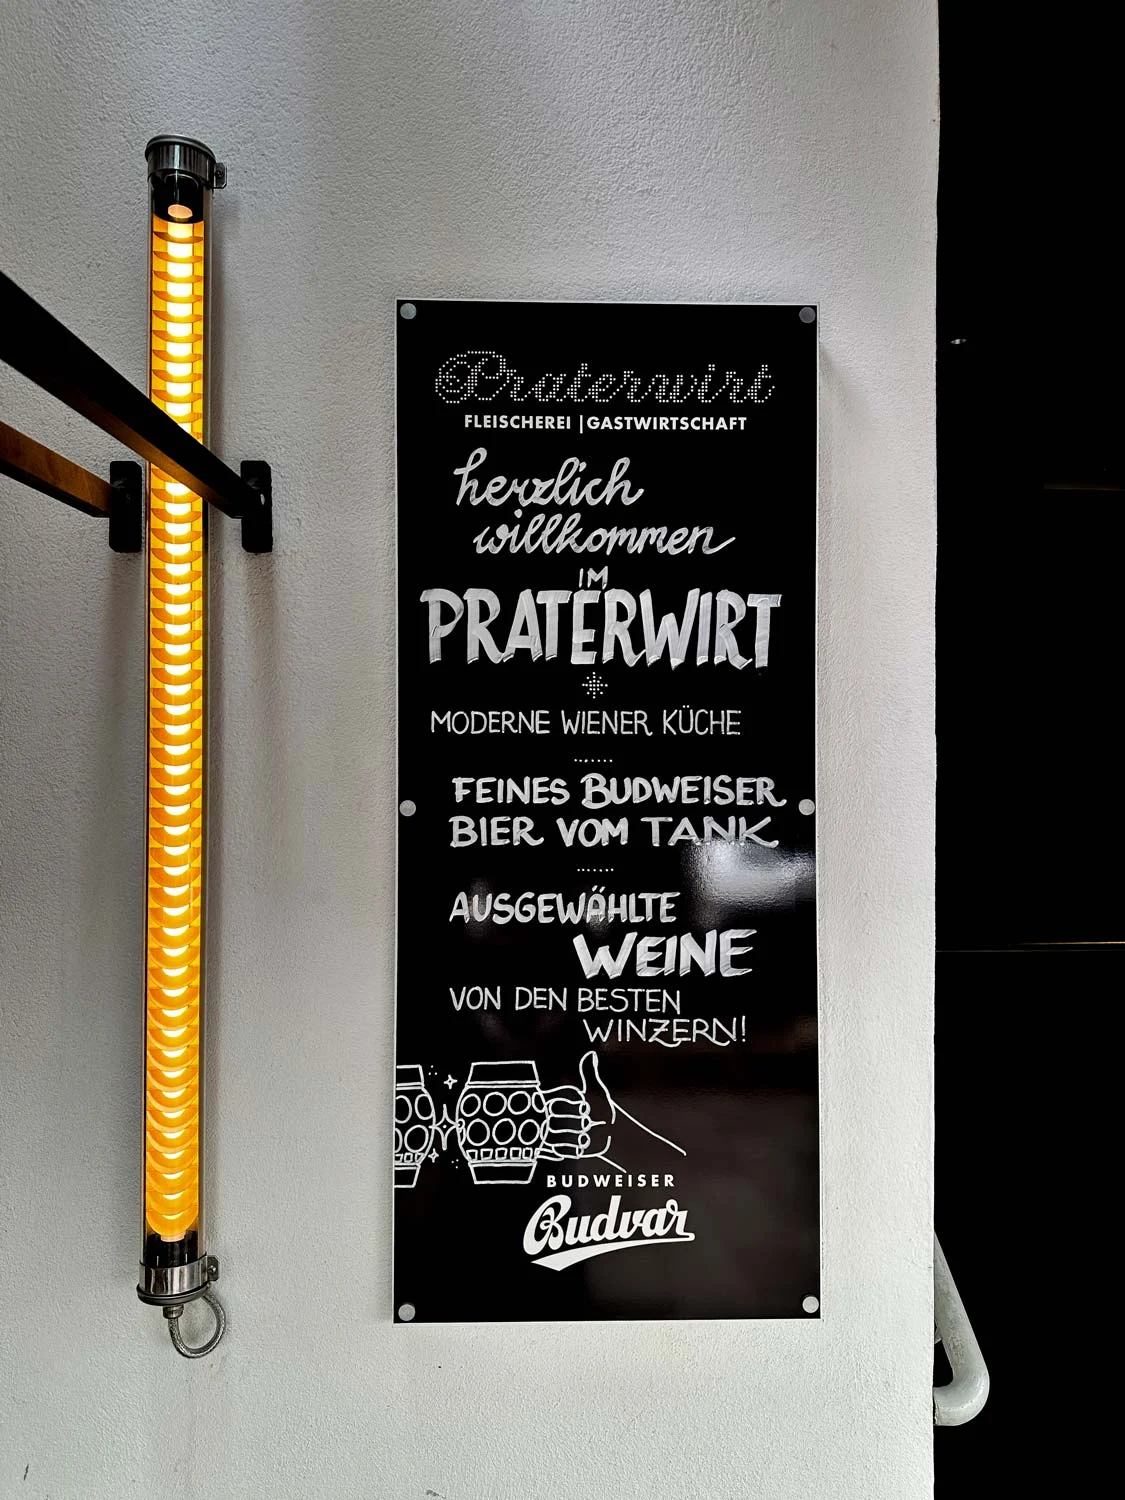 Praterwirt
FLEISCHEREI | GASTWIRTSCHAFT
herzlich
willkommen
IM
PRATERWIRT
MODERNE WIENER KÜCHE
FEINES BUDWEISER
BIER VOM TANK
AUSGEWÄHLTE
WEINE
VON DEN BESTEN
WINZERN!
BUDWEISER
Budvar